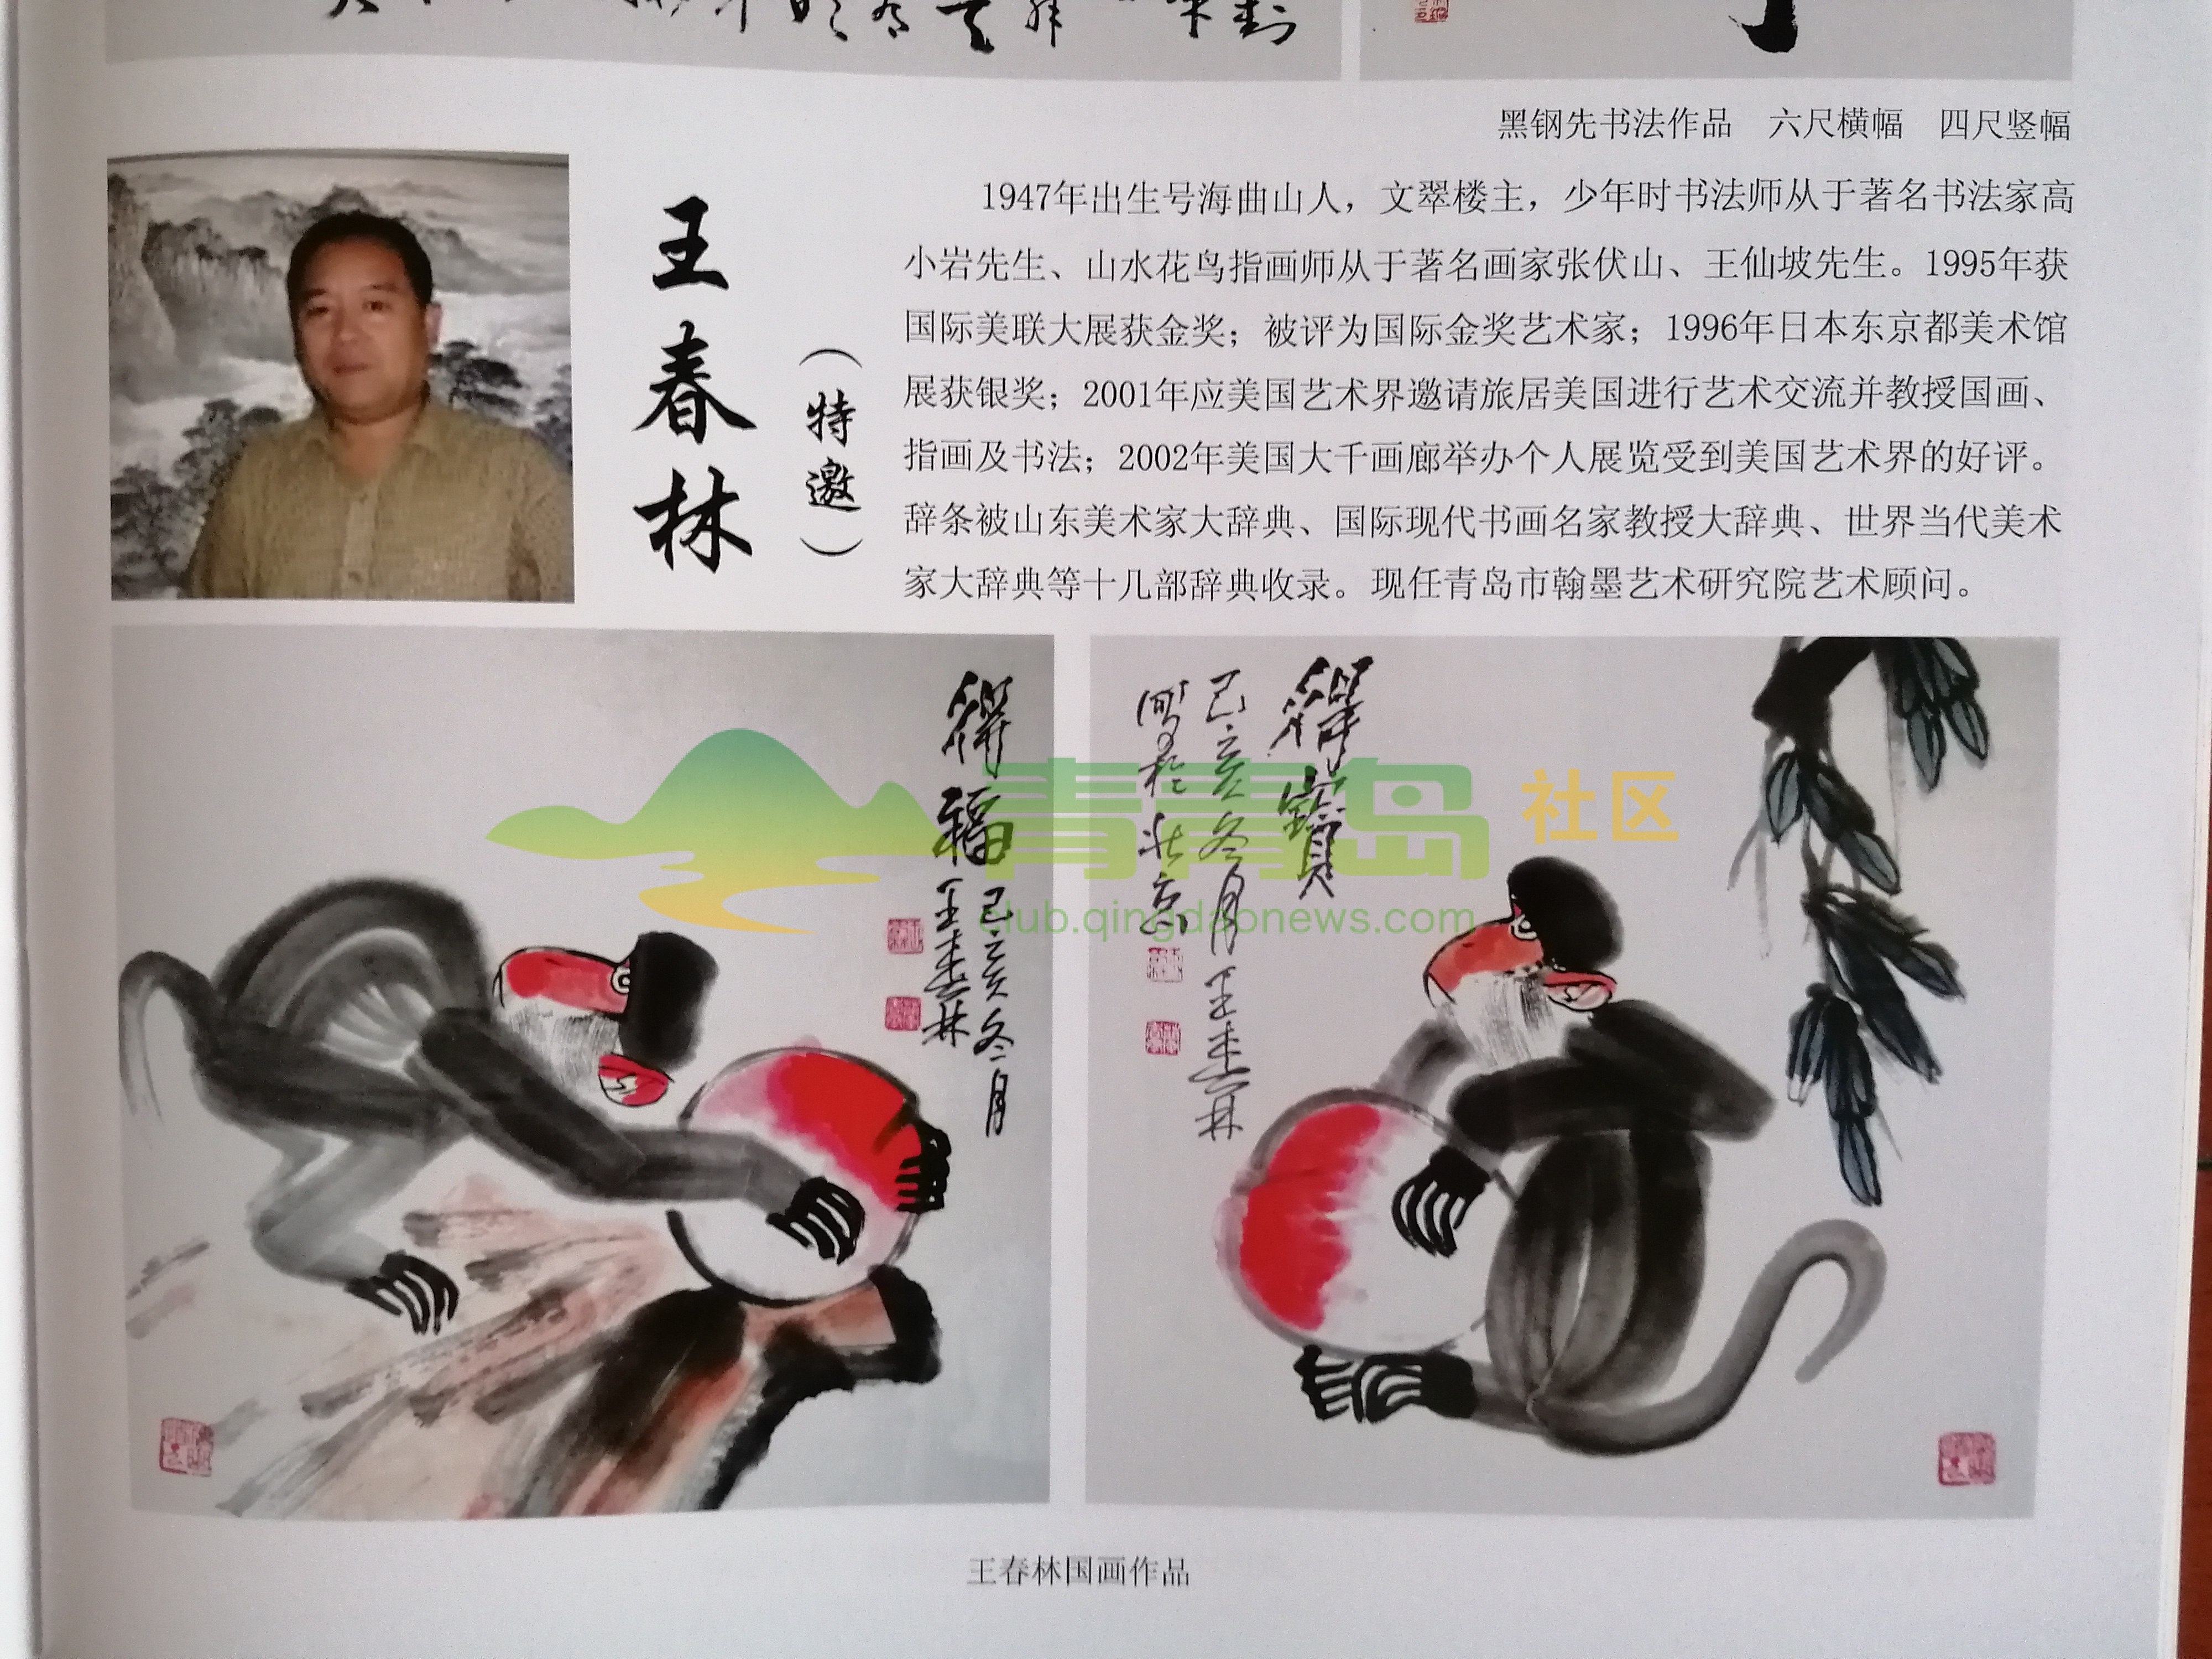 黑钢先书法作品 六尺横幅 四尺竖幅
王春林
（特邀）
1947年出生号海曲山人，文翠楼主，少年时书法师从于著名书法家高
小岩先生、山水花鸟指画师从于著名画家张伏山、王仙坡先生。1995年获
国际美联大展获金奖；被评为国际金奖艺术家；1996年日本东京都美术馆
展获银奖；2001年应美国艺术界邀请旅居美国进行艺术交流并教授国画、
指画及书法；2002年美国大千画廊举办个人展览受到美国艺术界的好评。
辞条被山东美术家大辞典、国际现代书画名家教授大辞典、世界当代美术
家大辞典等十几部辞典收录。现任青岛市翰墨艺术研究院艺术顾问。
得福
己亥冬月
王春林
得寶
己亥冬月王春林
青青岛 社区
club.qingdaonews.com
王春林国画作品